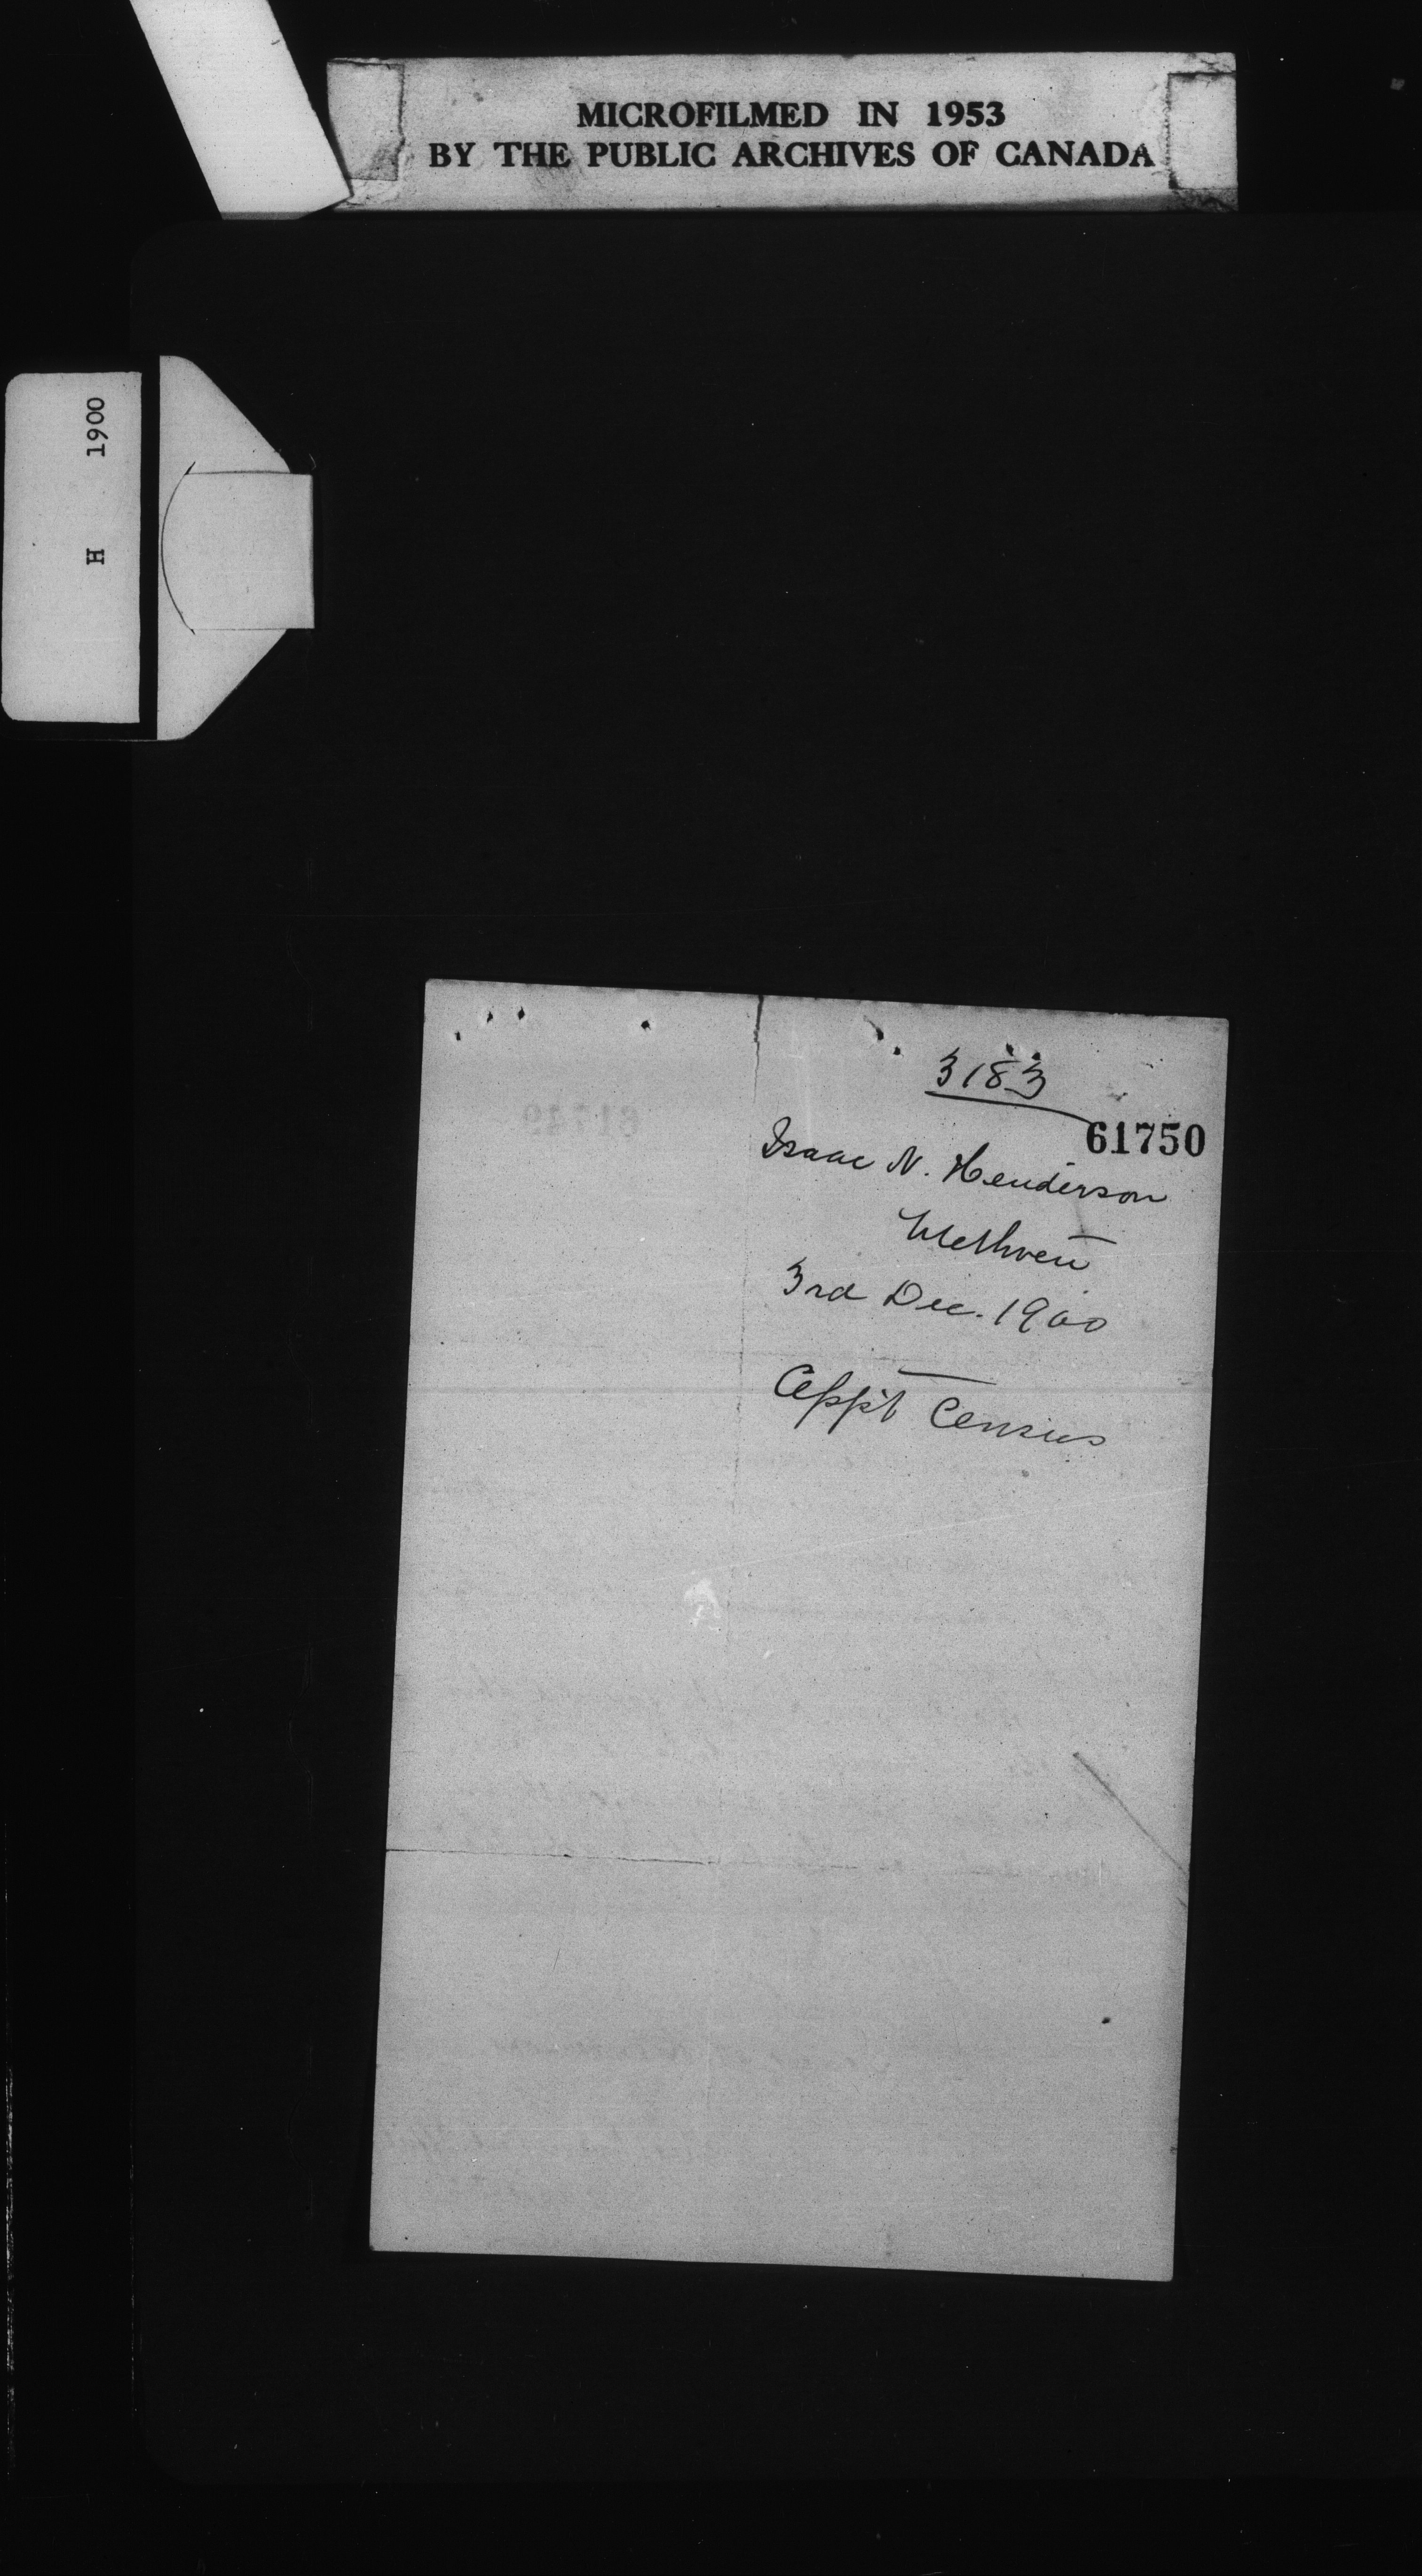 MICROFILMED IN 1953
BY THE PUBLIC ARCHIVES OF CANADA
H 1900
3183
61750
Isaac N. Henderson
Methven
3rd Dec. 1900
Appt Census
61749